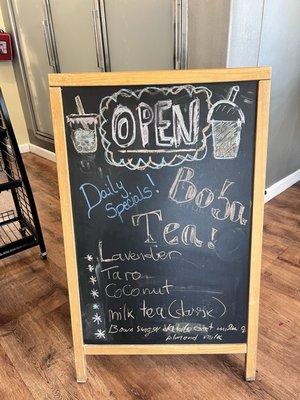 OPEN
Daily
Specials!
Boba
Tea!
* Lavender
* Taro
* Coconut
* milk tea (classic)
* Brown sugar oat milk &
almond milk